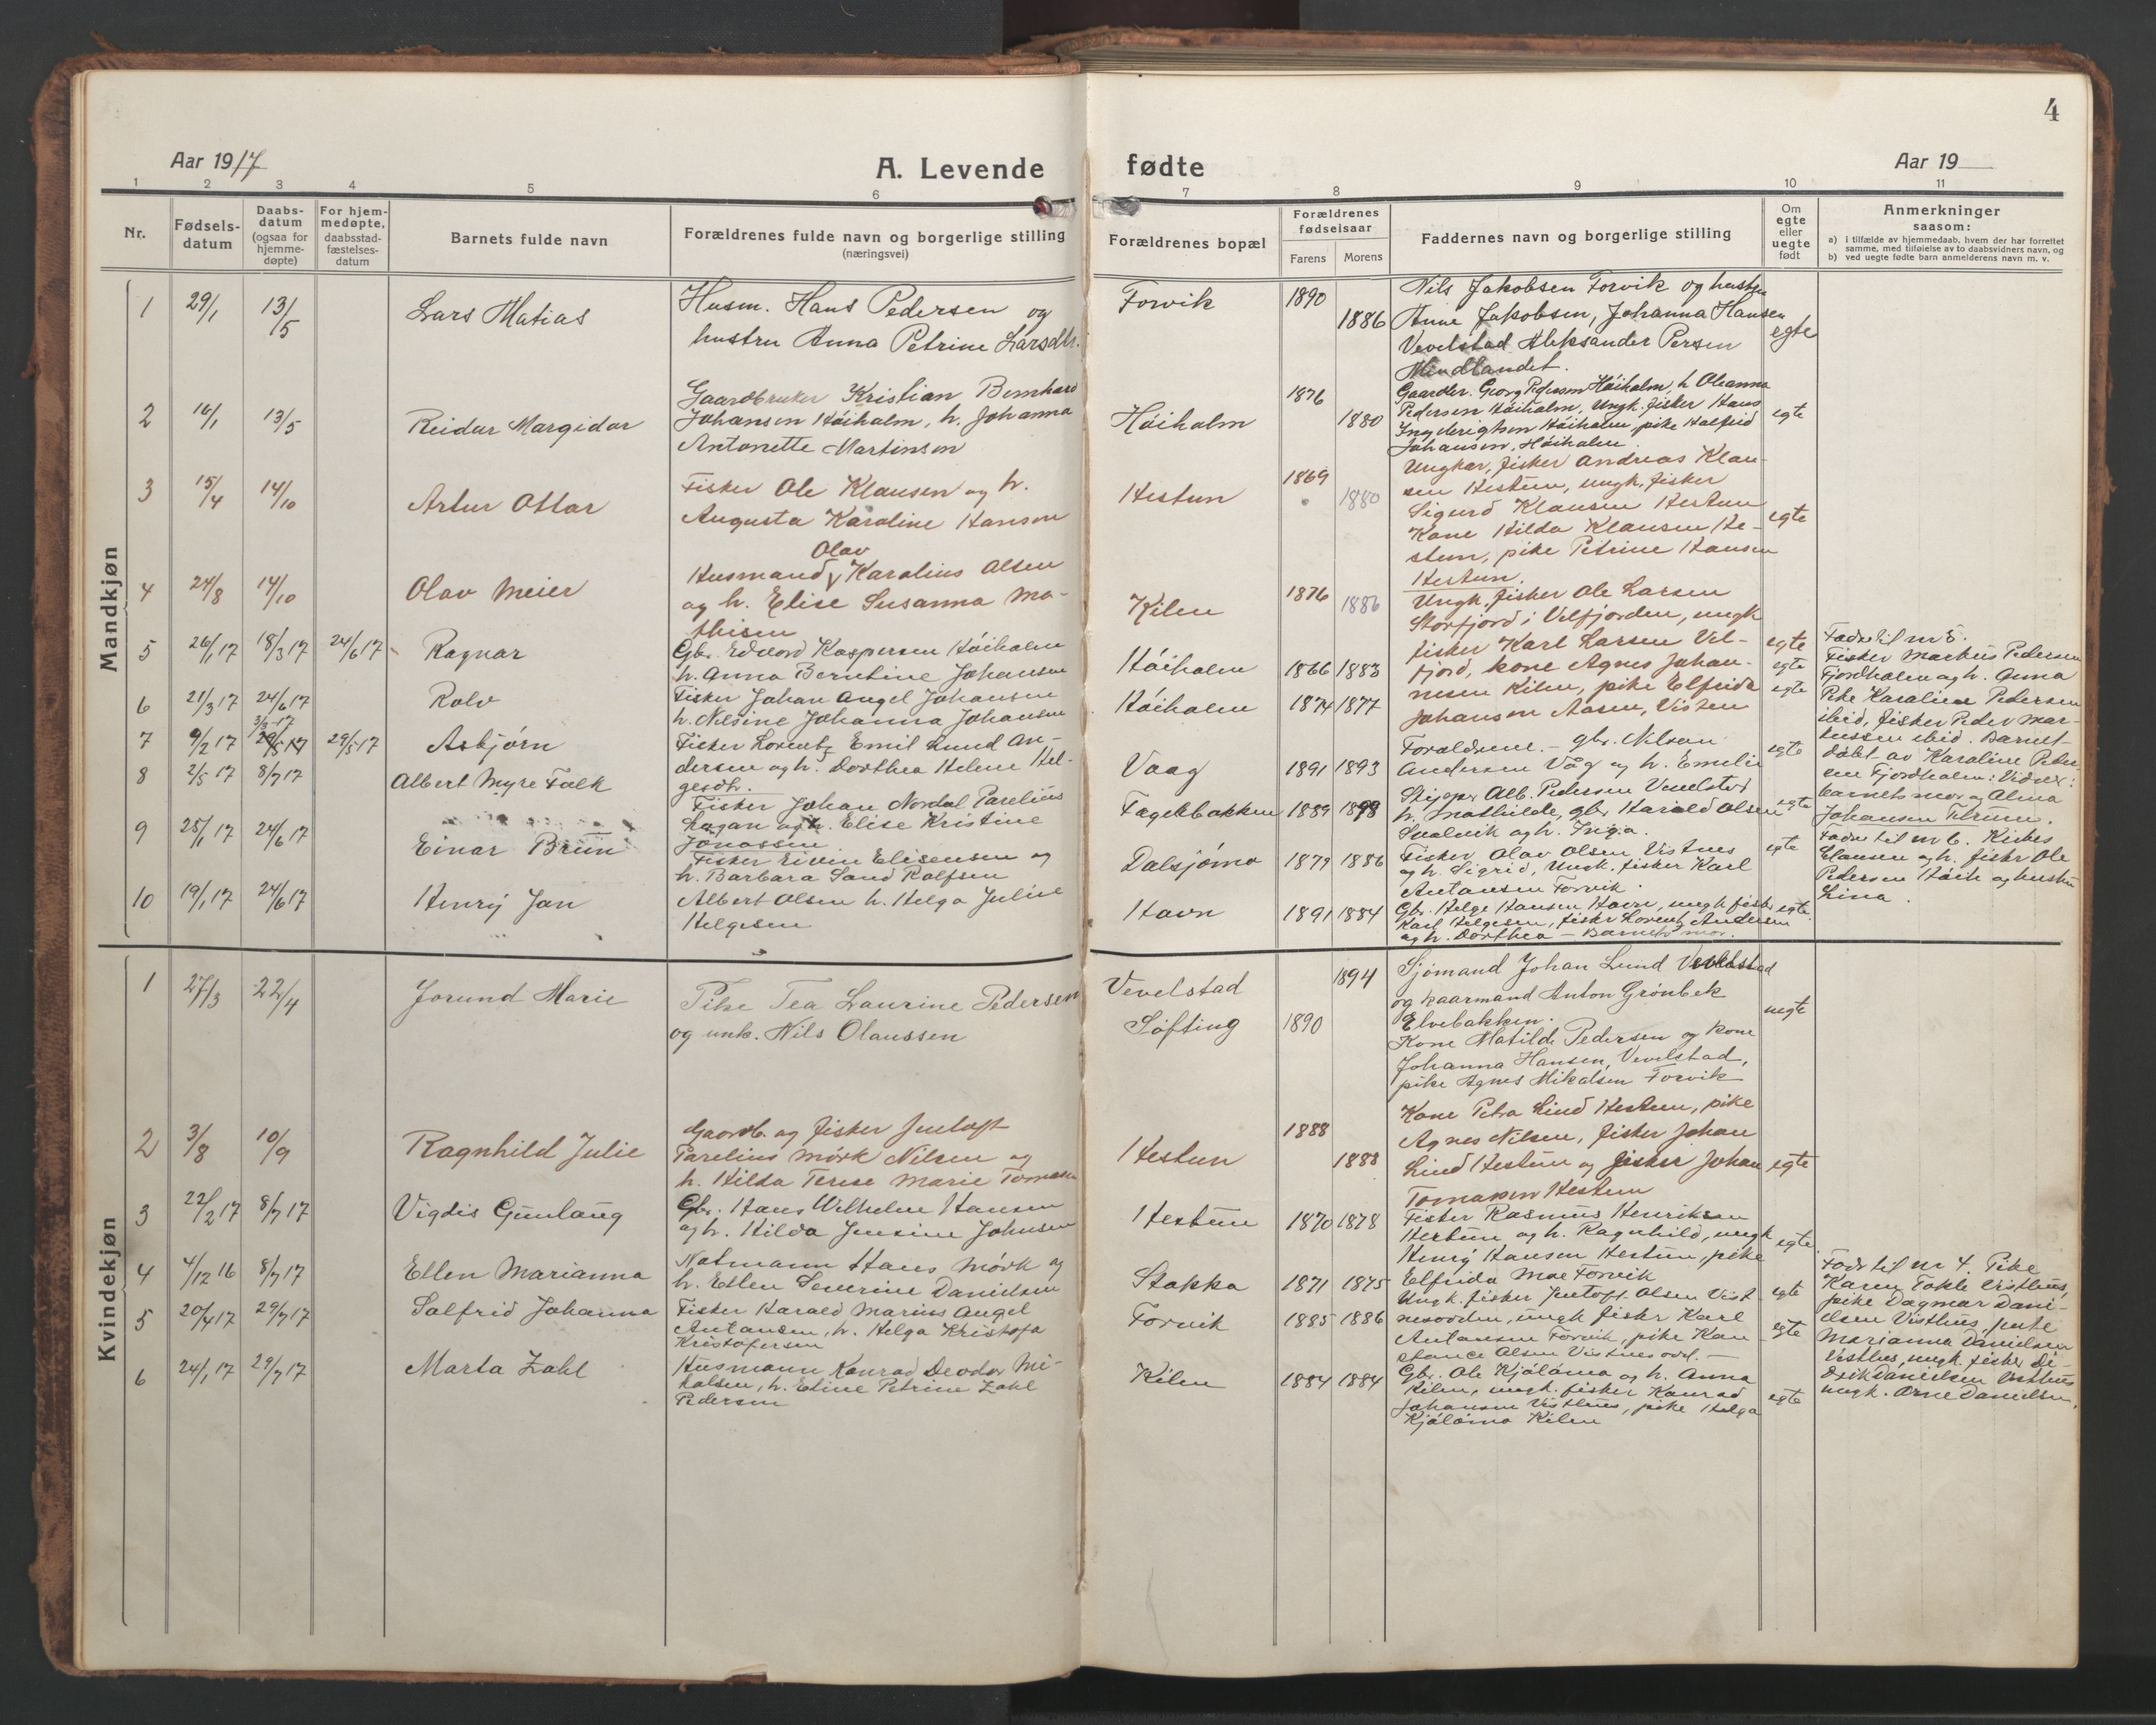 4
Aar 1917
A. Levende fødte
Aar 19
1 2 3 4 5 6 7 8 9 10 11
Nr.
Fødsels-
datum
Daabs-
datum
(ogsaa for
hjemme-
døpte)
For hjem-
medøpte,
daabsstad-
fæstelses-
datum
Barnets fulde navn
Forældrenes fulde navn og borgerlige stilling
(næringsvei)
Forældrenes bopæl
Forældrenes
fødselsaar
Farens Morens
Faddernes navn og borgerlige stilling
Om
egte
eller
uegte
født
Anmerkninger
saasom:
a) i tilfælde av hjemmedaab, hvem der har forrettet
samme, med tilføielse av to daabsvidners navn, og
b) ved uegte fødte barn anmelderens navn m. v.
Mandkjøn
1 29/1 13/5 Lars Matias
Husm. Hans Pedersen og
hustru Anna Petrine Larsdtr.
Forvik 1890 1886
Nils Jakobsen Forvik og hustru
Anne Jakobsen, Johanna Hansen
Vevelstad Aleksander Persen
Mindlandet.
egte
2 16/1 13/5 Reidar Margidar
Gaardbruker Kristian Bernhard
Johansen Høiholm, h. Johanna
Antonette Martinsen
Høiholm 1876 1880
Gaardbr. Georg Pedersen Høiholm, h. Oleanna
Pedersen Høiholm, Ungk. fisker Hans
Høiholm, pike
Johansen, Høiholm.
egte
3 15/4 14/10 Artur Ottar
Fisker Ole Klausen og h.
Augusta Karoline Hansen
Hestun 1869 1880
Ungkar, fisker Andreas Klau-
sen Hestun, ungk. fisker
Sigurd Klausen Hestun
Kone Hilda Klausen He-
stun, pike Petrine Hansen
Hestun.
egte
4 24/8 14/10 Olav Meier
Olav
Husmand V Karolius Olsen
og h. Elise Susanna Ma-
thisen
Kilen 1876 1886
Ungk. fisker Ole Larsen
Storfjord i Velfjorden, ungk
fisker Karl Larsen Vel-
fjord, kone Agnes Johan-
nesen Kilen, pike Elfrida
Johansen Aasen, Visten
egte
5 26/1 17 18/3 17 24/6 17 Ragnar
Gbr. Edvard Kaspersen Høiholm
h. Anna Berntine Johansen
Høiholm 1866 1883 egte
6 21/3 17 24/6 17 Rolv
Fisker Johan Angel Johansen
h. Nelsine Johanna Johansen
Høiholm 1874 1877 egte
7 9/2 17 3/3 17 29/5 17 29/5 17 Asbjørn
Fisker Lorentz Emil Lund An-
dersen og h. Dorthea Helene Hel-
gesdtr.
Vaag 1891 1893
Forældrene. - gbr. Nilsen
Andersen Våg og h. Emelie
egte
8 2/5 17 8/7 17 Albert Myre Falk
Fisker Johan Nordal Parelius
Lagan og h. Elise Kristine
Jonassen
Fagerbakken 1889 1898
Skipper Alb. Pedersen Vevelstad
h. Mathilde, gbr. Harald Olsen
og h. Inga.
egte
9 25/1 17 24/6 17 Einar Brun
Fisker Eivin Elisensen og
h. Barbara Sand Rolfsen
Dalsjømo 1879 1886
Fisker Olav Olsen Vistnes
og h. Sigrid, Ungk. fisker Karl
Antonsen Forvik.
egte
10 19/1 17 24/6 17 Henrij Jan
Albert Olsen h. Helga Julie
Helgesen
Havn 1891 1884
Gbr. Helge Hansen Havn, ungk fisker
Karl Helgesen, fisker Lorentz Andersen
og h. Dorthea - Barnets mor.
egte.
Fadre til nr 5.
Fisker Markus Pedersen
Fjordholm og h. Anna
Pike Karoline Pedersen
ibid, fisker Peder Mar-
kussen ibid. Barnet
døbt av Karoline Peder-
sen Fjordholm: Vidner:
barnets mor og Alma
Johansen Tilrum.
Fadre til nr 6. Kirkes
Clausen og h. fisker Ole
Pedersen Høih og hustru
Lina.
Kvindekjøn
1 27/3 22/4 Jorund Marie
Pike Tea Laurine Pedersen
og unk. Nils Olaussen
Vevelstad 1894
Søfting 1890
Sjømand Johan Lund Vevelstad
og kaarmand Anton Grønbek
Elvebakken.
Kone Matilde Pedersen og kone
Johanna Hansen, Vevelstad,
pike Agnes Mikalsen Forvik
uegte
2 3/8 10/9 Ragnhild Julie
Gaardb. og fisker Jentoft
Parelius Mørk Nilsen og
h. Hilda Terese Marie Tomassen
Hestun 1888 1888
Kone Petra Lind Hestun, pike
Agnes Nilsen, fisker Johan
Lind Hestun og fisker Johan
Tomassen Hestun
egte
3 22/2 17 8/7 17 Vigdis Gunlaug
Gbr. Hans Wilhelm Hansen
og h. Hilda Jensine Johnsen
Hestun 1870 1878
Fisker Rasmus Henriksen
Hestun og h. Ragnhild, ungk
Henrÿ Hansen Hestun, pike
Elfrida Moe Forvik
egte
4 4/12 16 8/7 17 Ellen Marianna
Notmann Hans Mørk og
h. Ellen Severine Danielsen
Stokka 1871 1875 egte
5 20/4 17 29/7 17 Solfrid Johanna
Fisker Harald Marius Angel
Antonsen, h. Helga Kristofa
Kristofersen
Forvik 1885 1886
Ungk. fisker Jentoft Olsen Vist-
nesodden, ungk fisker Karl
Antonsen Forvik, pike Kon
stance Olsen Vistnesodd. -
egte
6 24/1 17 29/7 17 Marta Zahl
Husmann Konrad Deodor Mi-
kalsen, h. Eline Petrine Zahl
Pedersen
Kilen 1884 1884
Gbr. Ole Kjølåmo og h. Anna
Kilen, ungk. fisker Konrad
Johansen Visthus, pike Helga
Kjølåmo Kilen
egte
Fadr til nr 4. Pike
Karen Tokle Visthus,
pike Dagmar Dani-
elsen Visthus,
Marianna Danielsen
Visthus, ungk. fisker Di-
drik Danielsen Visthus
ungk. Arne Danielsen.